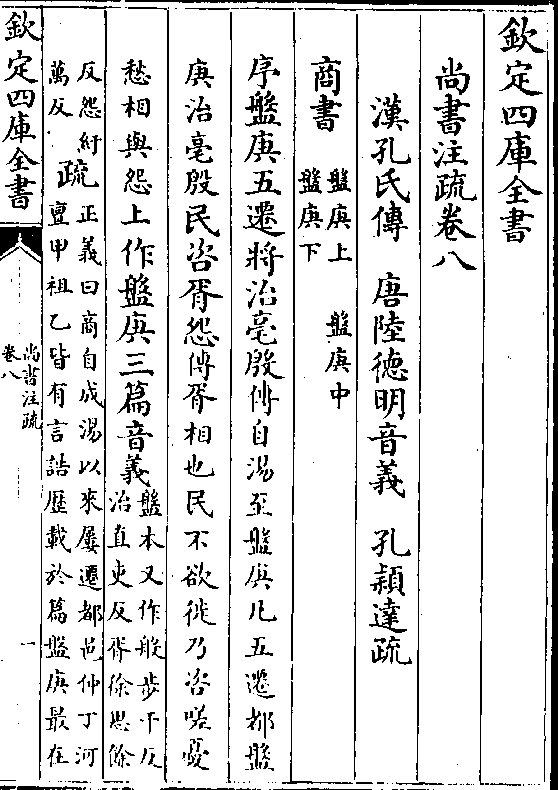 欽定四庫全書
尚書注疏卷八
漢孔氏傳 唐陸德明音義 孔穎達疏
商書 盤庚上 盤庚中
盤庚下
序盤庚五遷將治亳殷傳自湯至盤庚凡五遷都盤
庚治亳殷民咨胥怨傳胥相也民不欲徙乃咨嗟憂
愁相與怨上作盤庚三篇音義盤本又作般步干反
治直吏反胥徐思餘
反怨紆
萬反疏正義曰商自成湯以來屢遷都邑仲丁河
亶甲祖乙皆有言誥歷載於篇盤庚最在
欽定四庫全書
尚書注疏
卷八
一